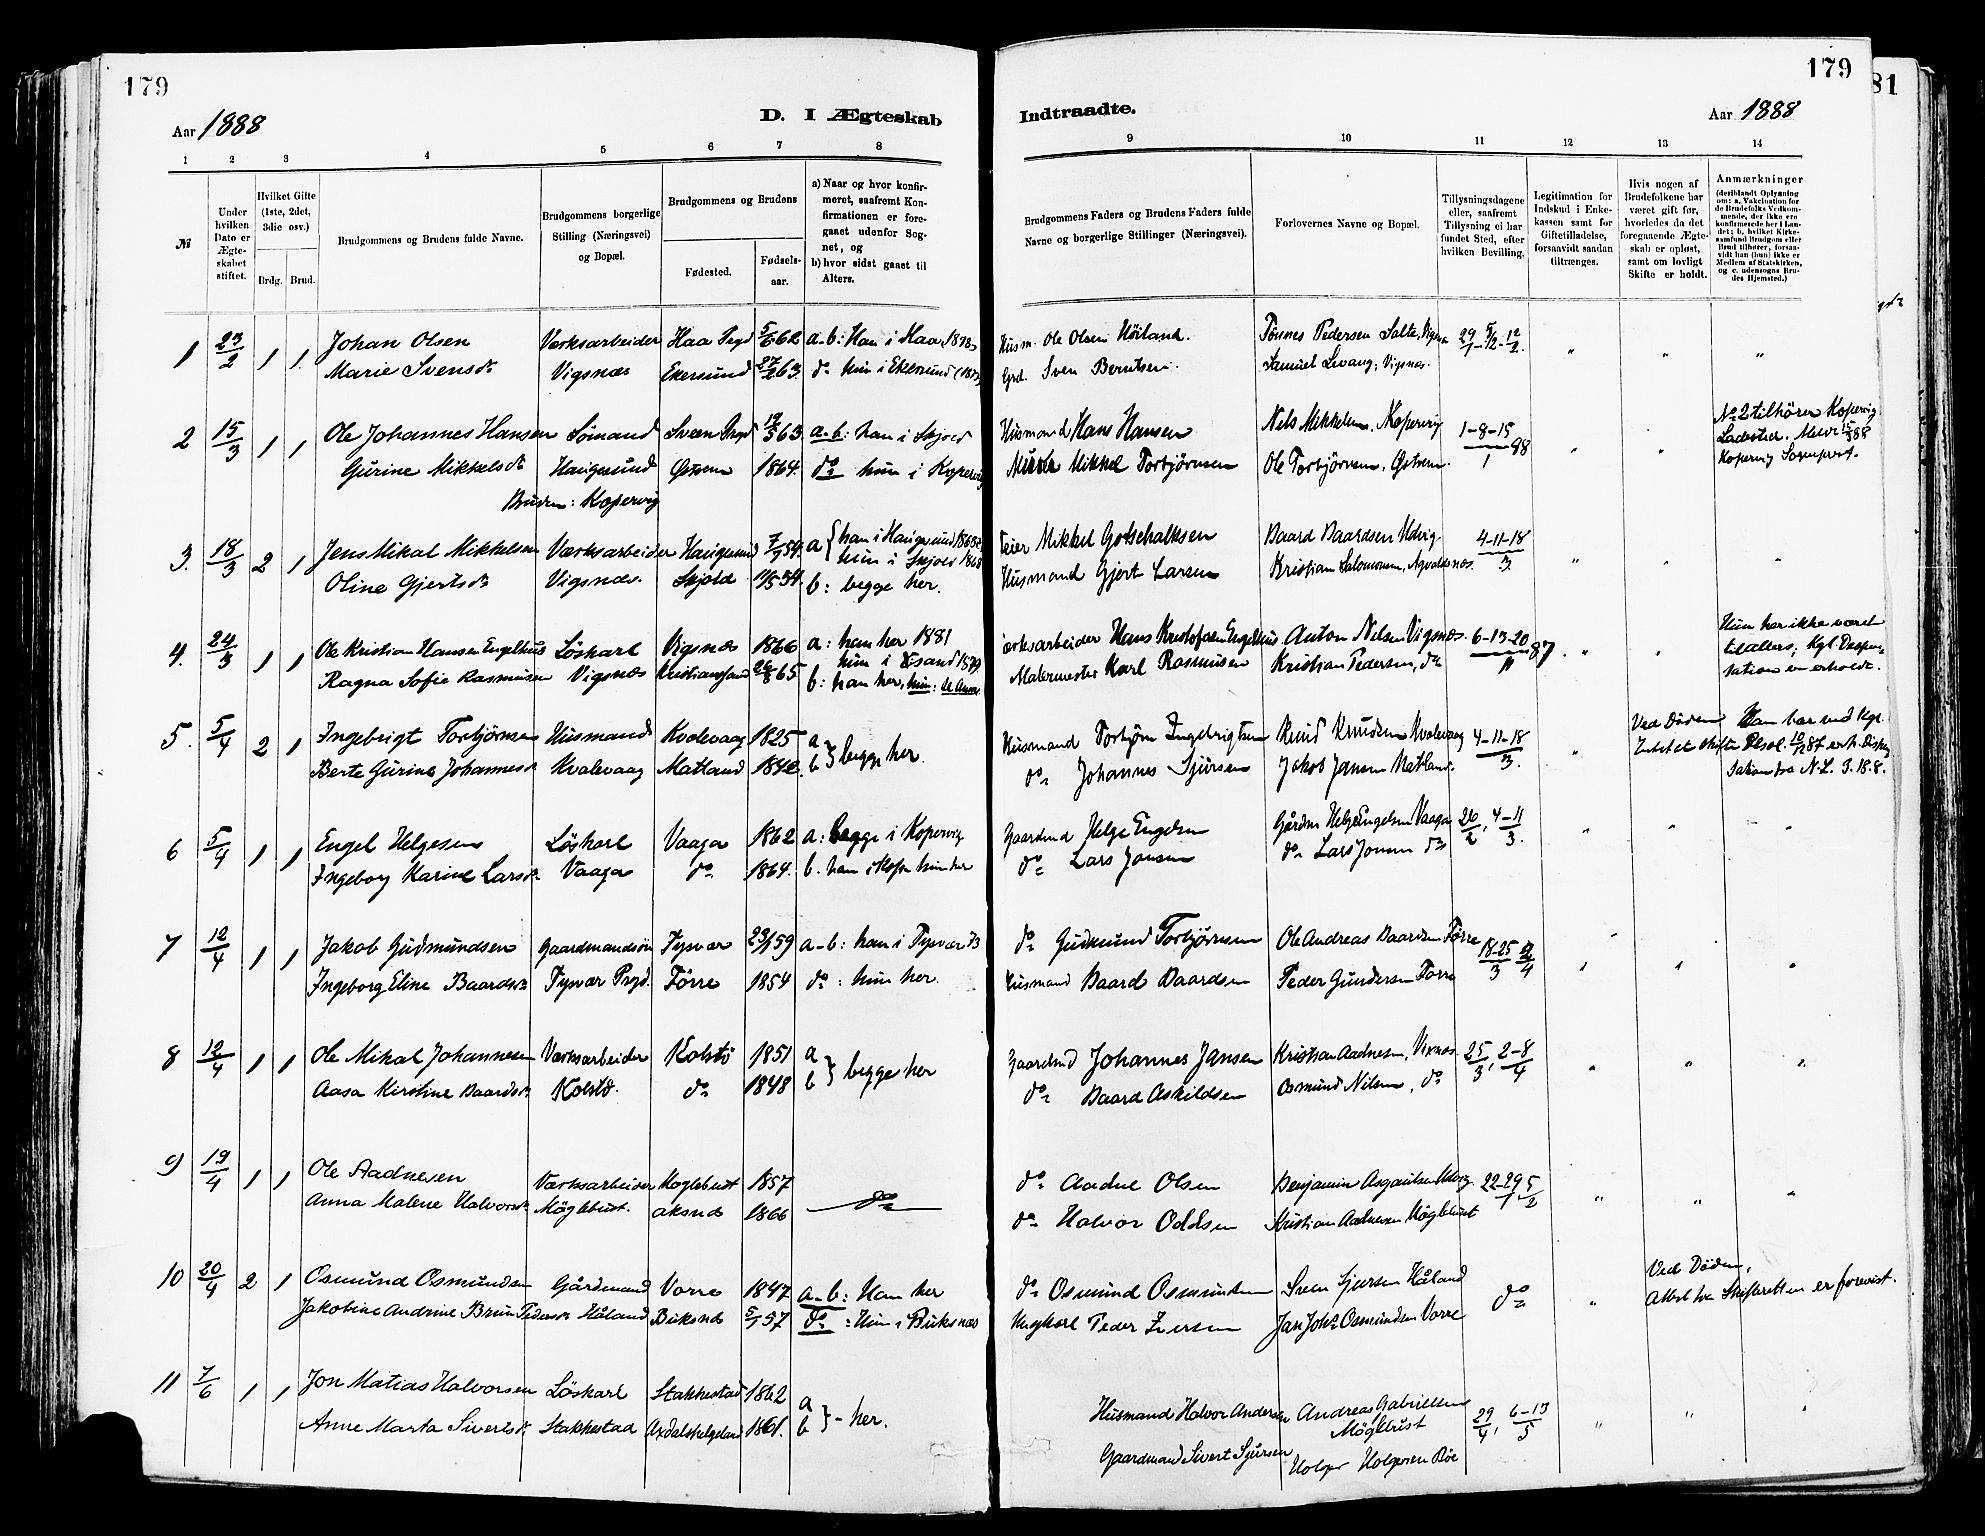 179
179
81
Aar 1888
D. I Ægteskab
Indtraadte.
Aar 1888
1 2 3 4 5 6 7 8
9 10 11 12 13 14
№
Under hvilken Dato er Ægteskabet stiftet.
Hvilket Gifte (1ste, 2det, 3die osv.)
Brdg. Brud.
Brudgommens og Brudens fulde Navne.
Brudgommens borgerlige Stilling (Næringsvei) og Bopæl.
Brudgommens og Brudens
Fødested.
Fødselsaar.
a) Naar og hvor konfirmeret, saafremt Konfirmationen er foregaaet udenfor Sognet, og
b) hvor sidst gaaet til Alters.
Brudgommens Faders og Brudens Faders fulde Navne og borgerlige Stillinger (Næringsvei).
Forlovernes Navne og Bopæl.
Tillysningsdagene eller, saafremt Tillysning ei har fundet Sted, efter hvilken Bevilling.
Legitimation for Indskud i Enkekassen samt for Giftetilladelse, forsaavidt saadan tiltrænges.
Hvis nogen af Brudefolkene har været gift før, hvorledes da det foregaaende Ægteskab er opløst, samt om lovligt Skifte er holdt.
Anmærkninger (deriblandt Oplysning om: a. Vakcination for de Brudefolks Vedkommende, der ikke ere konfirmerede her i Landet; b. hvilket Kirkesamfund Brudgom eller Brud tilhører, forsaavidt han (hun) ikke er Medlem af Statskirken, og c. udensogns Brudes Hjemsted.)
1 23/2 1 1. Johan Olsen Værksarbeider Haa Prgd 5/6 62 a-b: Han i Haa 1878 Husm. Ole Olsen Høiland. Tønnes Pedersen Salte, Vigsn 29/1-5/2-12/2. " " "
Marie Svensd. Vigsnæs Ekersund 27/2 63. do hun i Ekersund (1878) Grd. Sven Berntsen. Samuel Levang, Vigsnæs.
2 15/3 1 1 Ole Johannes Hansen Sømand Sveen Prgd 19/5 63. a-b: han i Skjold Husmand Hans Hansen Nils Mikkelsen, Kopervig 1-8-15/1 88 " " No 2 tilhører Kopervig
Gurine Mikkelsd. Haugesund Østrem 1864. do hun i Kopervig Mikkel Torbjørnsen Ole Torbjørnsen, Østrem. Ladested. 15/3 88
Bruden: Kopervig Kopervig
3. 18/3 2 1 Jens Mikal Mikkelsen Værksarbeider Haugesund 7/9 54. a { han i Haugesund 1868 Feier Mikkel Gotschalksen Baard Baardsen Udvig. 4-11-18/3 " " "
Oline Gjertsd. Vigsnæs. Skjold 11/5 54. hun i Skjold 1868 b: begge her. Husmand Gjert Larsen Kristian Salomonsen, Avaldsnæs.
4. 24/3 1 1 Ole Kristian Hansen Engelhus Løskarl Vigsnæs 1866 a: han her 1881 Værksarbeider Hans Kristofersen Engelhus Anton Nilsen Vigsnæs. 6-13-20/11 87 " " Hun har ikke været
Ragna Sofie Rasmusen Vigsnæs Kristianssand 26/8 65 hun i Xsand 1879 b: han her, hun: se Anm. Malermester Karl Rasmusen Kristian Pedersen, do tilalters; Kgl. Dispensation er erholdt.
5. 5/4 2 1 Ingebrigt Torbjørnsen Husmand Kvalevaag 1825 a } begge her. Husmand Torbjørn Ingebrigtsen Knud Knudsen Kvalevaag 4-11-18/3. " Ved Døden Han har ved Kgl.
Berte Gurine Johannesd. Kvalevaag Matland 1842. b do Johannes Sjursen Jakob Jansen Matland. Intet at skifte Resol. 10/12 87 erh. Dispensation fra N.L. 3.18.8.
6 5/4 1 1 Engel Helgesen Løskarl Vaaga 1862 a: begge i Kopervig Gaardmd Helge Engelsen Gårdm. Helge Engelsen Vaaga 26/2, 4-11/3. " " "
Ingeborg Karine Larsd. Vaaga do 1864. b. han i Kop. hun her do Lars Jansen do Lars Jonsen do
7 12/4 1 1 Jakob Gudmundsen Gaardmandsøn Tysvær 23/1 59 a-b: han i Tysvær do Gudmund Torbjørnsen Ole Andreas Baardsen Førre 18-25/3 2/4 " " "
Ingeborg Eline Baardsd. Tysvær Prgd. Førre 1854 do: hun her. Husmand Baard Baardsen Peder Gundersen Førre
8 12/4 1 1 Ole Mikal Johannesen Værksarbeider Kolstø 1851 a } begge her Gaardmd Johannes Jansen Kristian Aadnesen, Vixnæs 25/3, 2-8/4 " " "
Aasa Kirstine Baardsd. Kolstø. do 1848 b do Baard Askildsen Osmund Nilsen, do
9 19/4 1 1 Ole Aadnesen Værksarbeider Møglebust 1857 do do Aadne Olsen Benjamin 22-29/1 5/2 " " "
Anna Malene Halvorsd. Møglebust. 1866 do Halvor Oddsen Kristian Aadnesen Møglebust
10 20/4 2 1 Osmund Osmundsen Gårdmand Vorre 1847 a-b: Han her do Osmund Osmundsen Sven Sjursen Håland do " Ved Døden,
Jakobine Andrine Bruun Pedersd. Håland Buksnæs 5/1 57 do: Hun i Buksnæs Peder Iversen Jan Joh. Osmundsen Vorre Attest fra Skifteretten er forevist.
11 7/6 1 1 Jon Matias Halvorsen Løskarl Stakkestad 1862 a } - her. Husmand Halvor Andersen Andreas Gabrielsen Møglebust 29/4, 6-13/5 " " "
Anne Marta Sivertsd. Stakkestad Axdalshelgeland 1861. b Gaardmand Sivert Sjursen Holger Holgersen Bøe